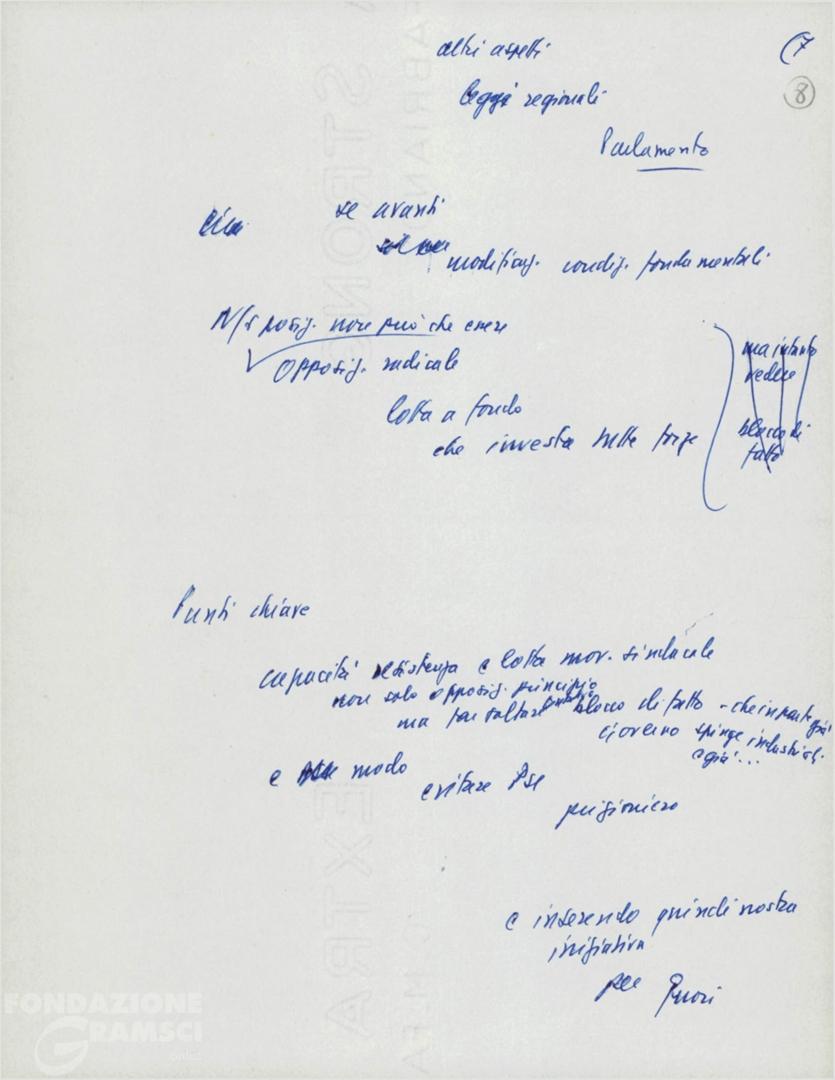 altri aspetti
(7
8
leggi regionali
Parlamento
se avanti
modificaz. condiz. fondamentali
N/s posiz. non può che essere
opposiz. radicale
lotta a fondo
che investa tutte forze
ma intanto
vedere
blocco di
fatto
Punti chiave
capacità resistenza e lotta mov. sindacale
non solo opposiz. principio
ma far saltare blocco di fatto - che in parte già
Governo spinge industrial.
e già...
e modo
evitare Psi
prigioniero
e inserendo quindi nostra
iniziativa
per
FONDAZIONE
GRAMSCI
onlus
FABRIANO
EXTRA
STRONG